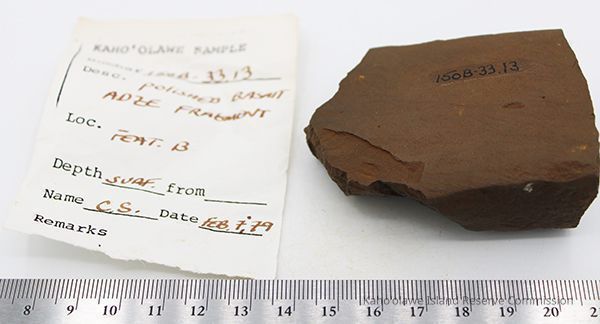 KAHO'OLAWE SAMPLE
Number 150B-33.13
Desc. POLISHED BASALT
ADZE FRAGMENT
Loc.
FEAT. B
Depth SURF. from
Name C.S. Date FEB. 7, 79
Remarks
150B-33.13
8 9 10 11 12 13 14 15 16 17 18 19 20 2
Kahoolawe Island Reserve Commission